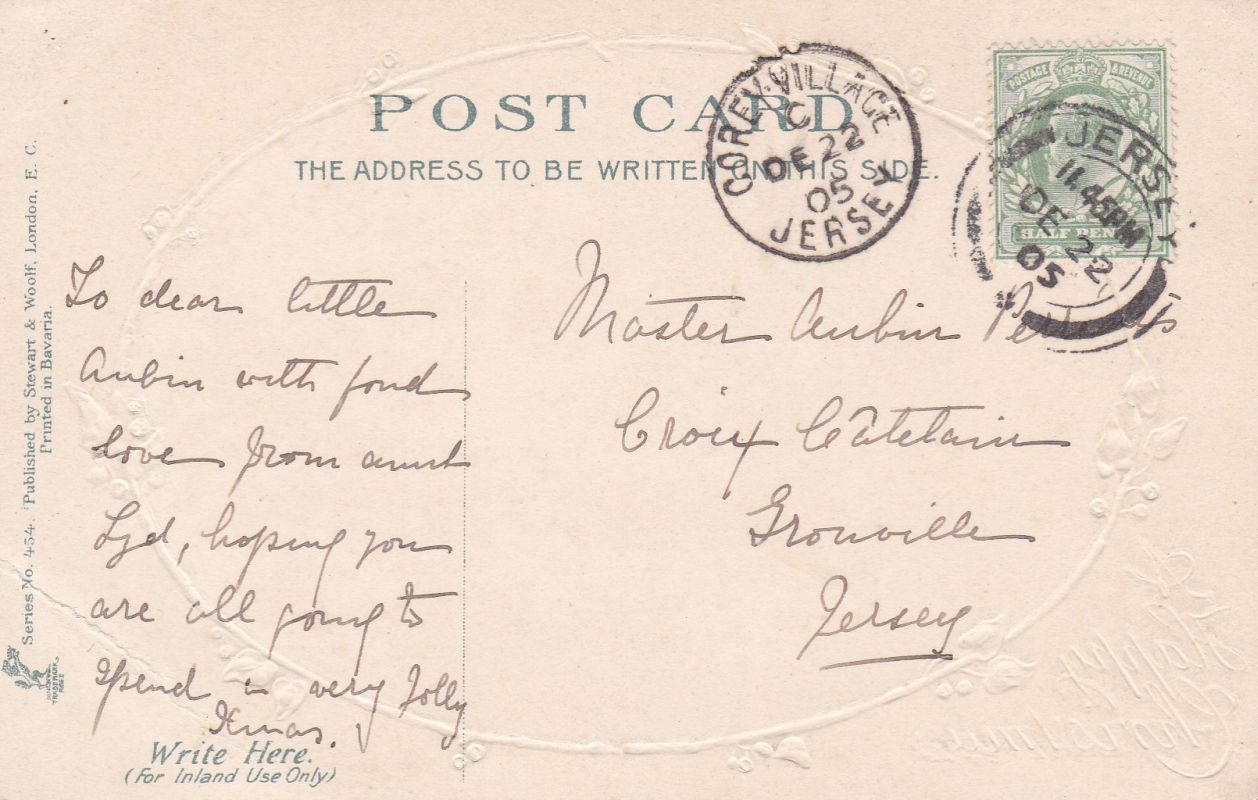 POST CARD
THE ADDRESS TO BE WRITTEN ON THIS SIDE.
GOREY-VILLAGE
C
DE 22
05
JERSEY
POSTAGE & REVENUE
HALF PENNY
JERSEY
11.45PM
DE 22
05
Series No. 454. Published by Stewart & Woolf, London, E. C.
Printed in Bavaria.
To dear little
Aubin with fond
love from aunt
Lyd, hoping you
are all going to
spend a very Jolly
Xmas.
Write Here.
(For Inland Use Only)
Master Aubin
Croix Câtelain
Grouville
Jersey